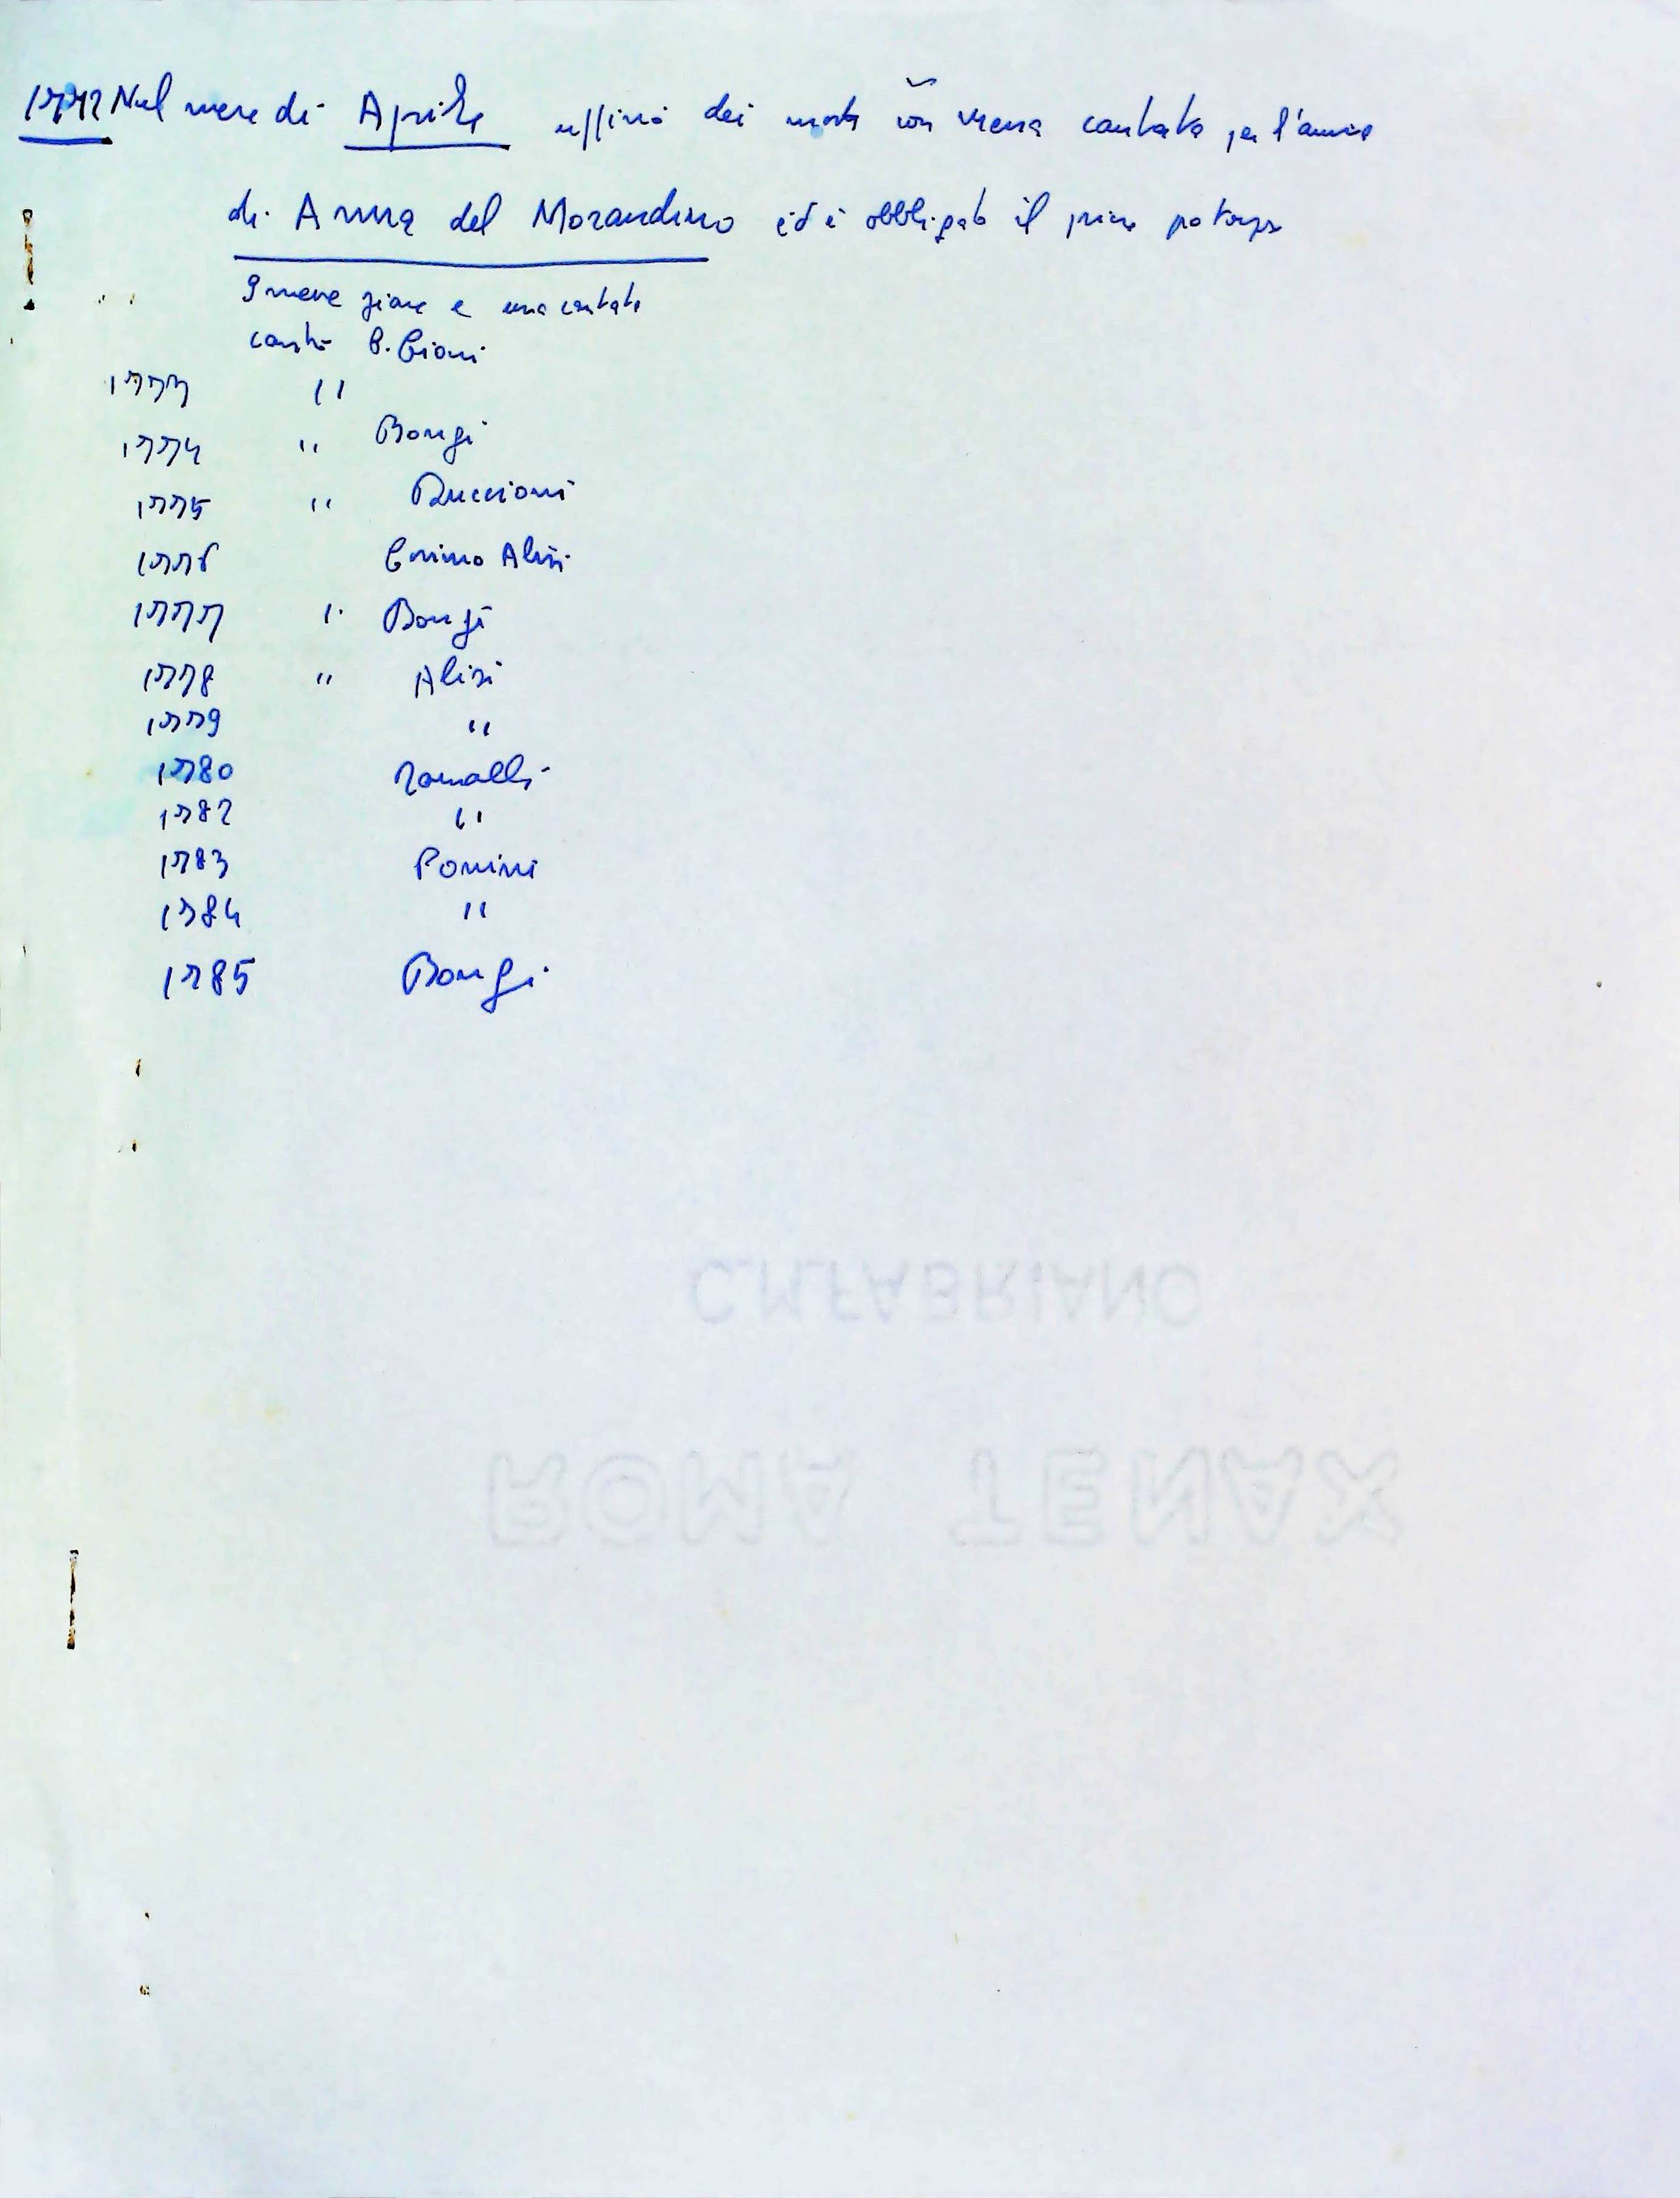 1772 Nel mese di Aprile uffizio dei morti con messa cantata per l'anima
di Anna del Morandino ed è obbligato il primo
9 messe piane e una cantata
cantò B. Cioni
1773 "
1774 " Bongi
1775 " Buccioni
1776 Cosimo Alisi
1777 " Bongi
1778 " Alisi
1779 "
1780
1782 "
1783 Ponini
1784 "
1785 Bongi
C.M.FABRIANO
ROMA TENAX